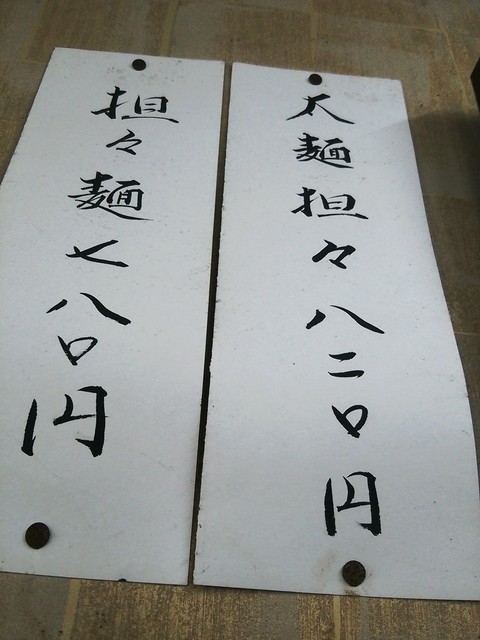 太麺担々八二〇円
担々麺七八〇円